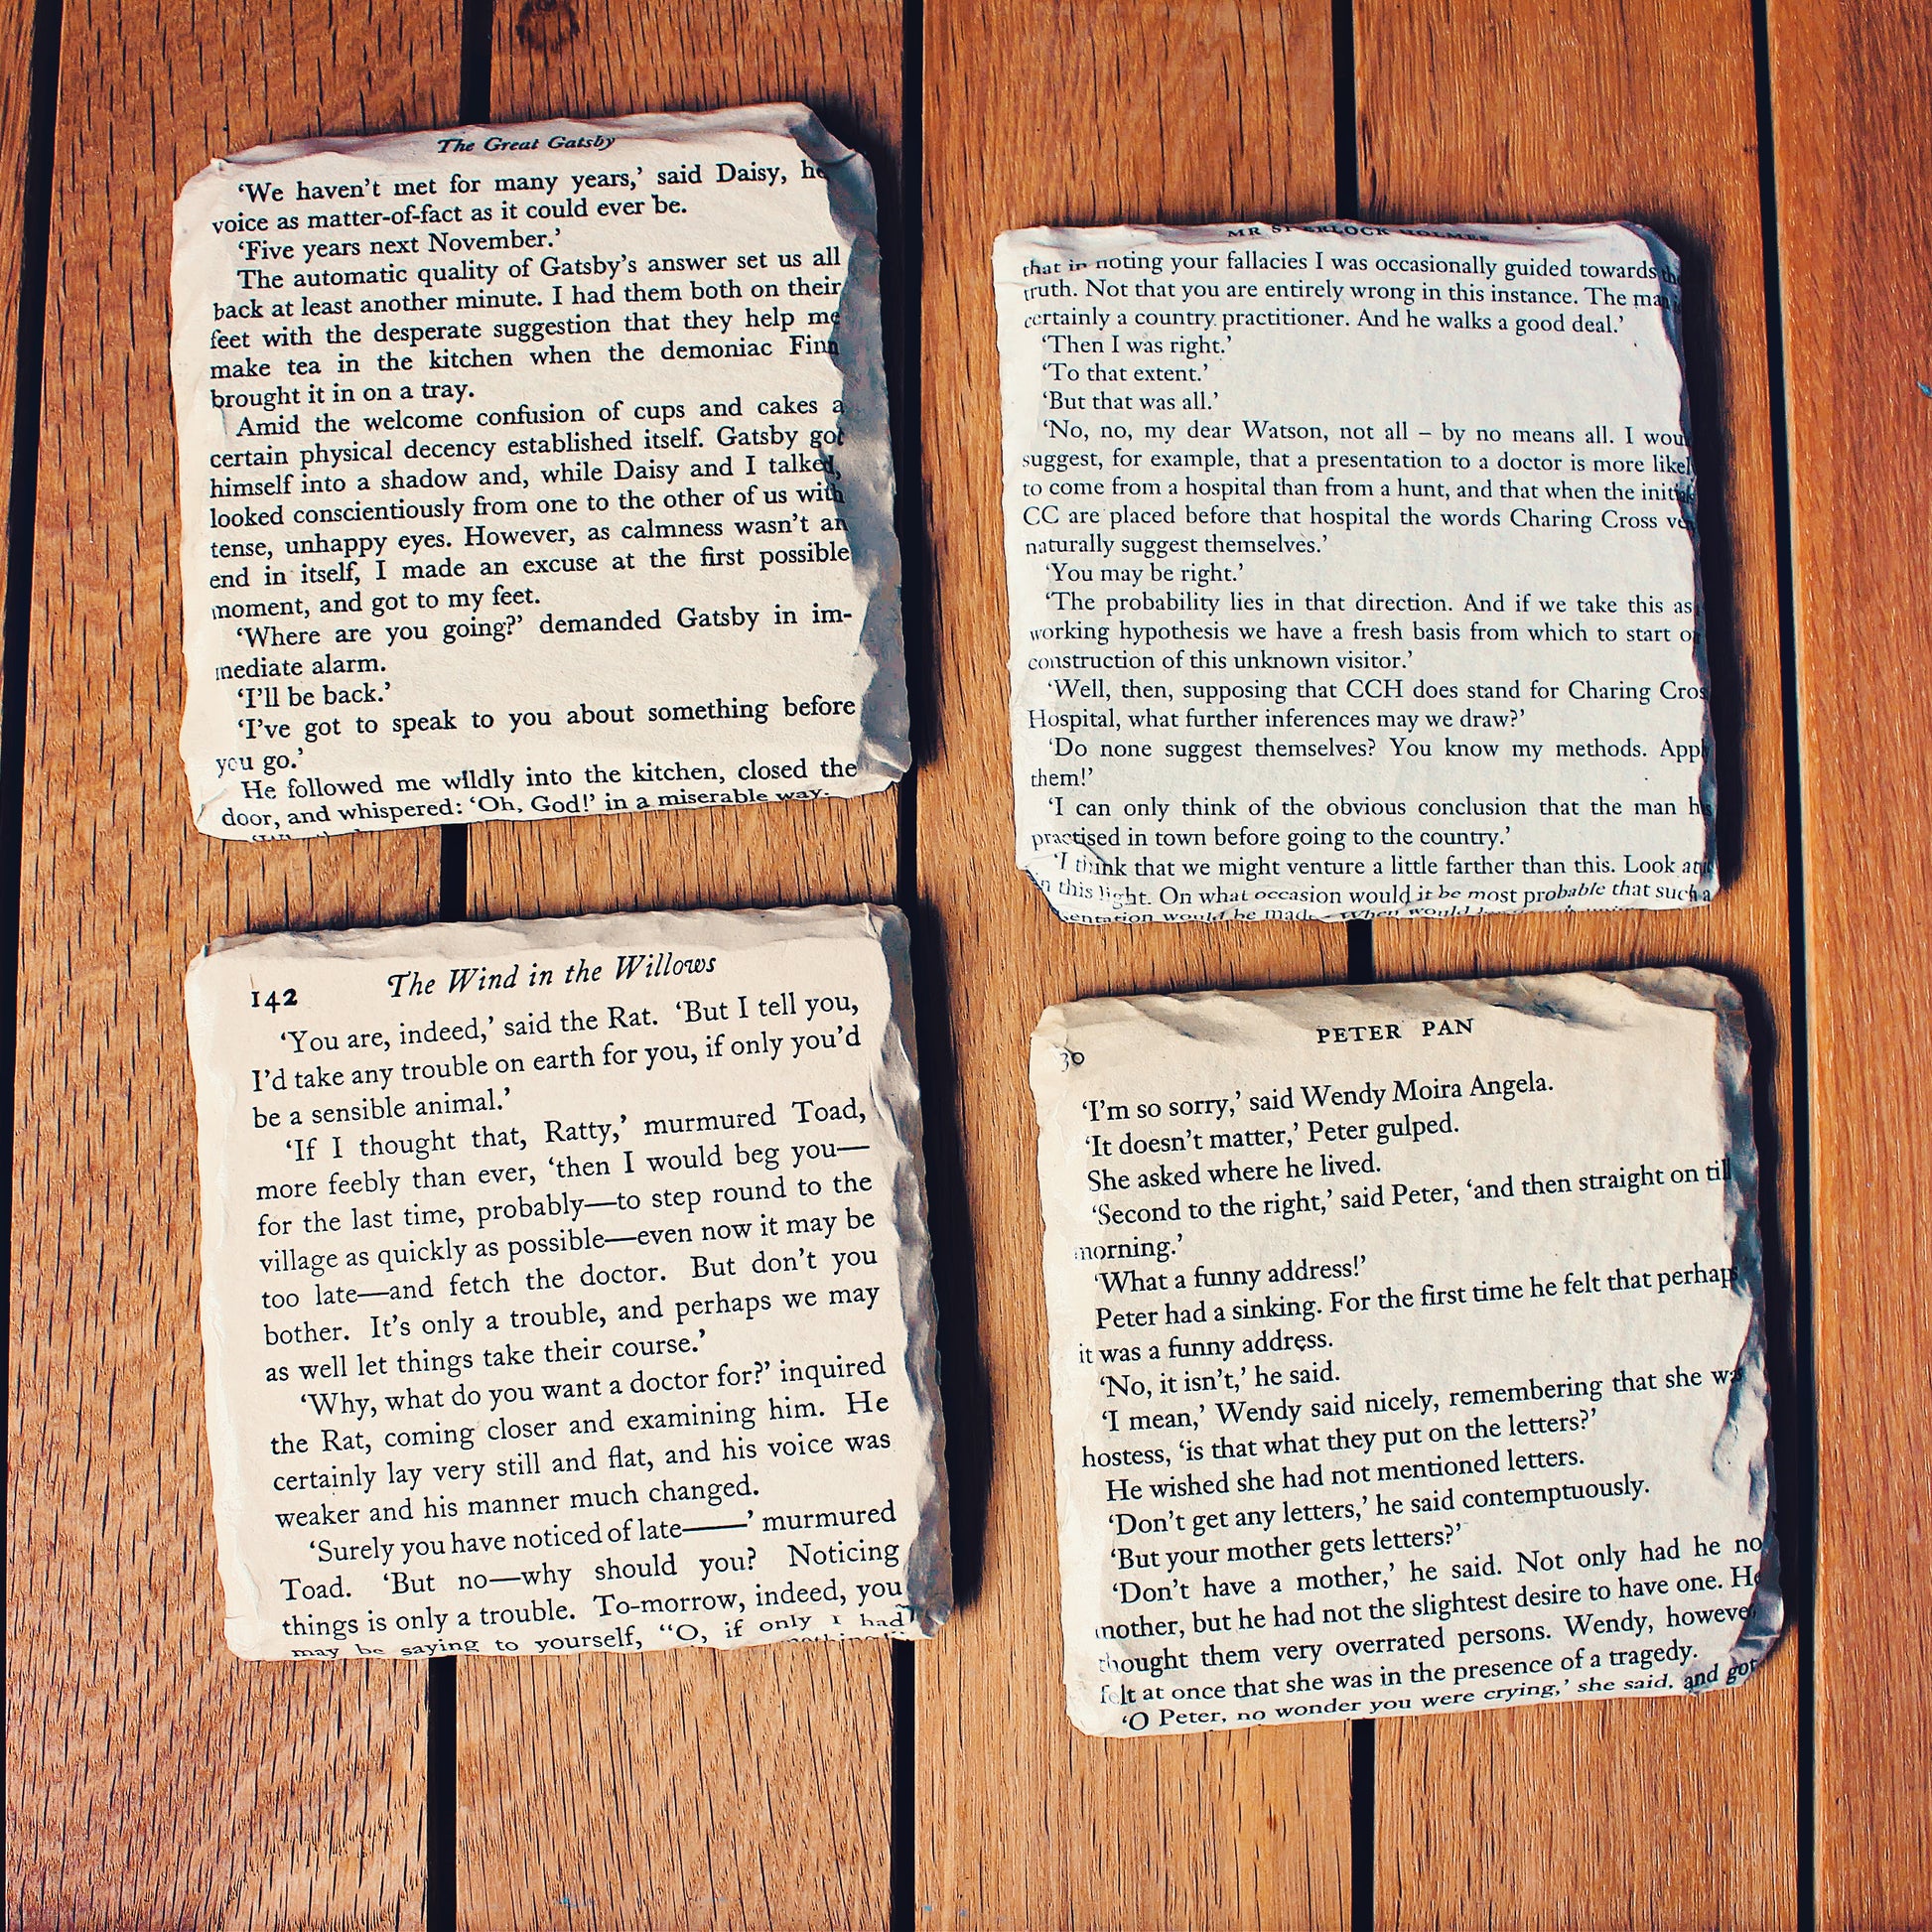 The Great Gatsby
‘We haven’t met for many years,’ said Daisy, he
voice as matter-of-fact as it could ever be.
‘Five years next November.’
The automatic quality of Gatsby’s answer set us all
back at least another minute. I had them both on their
feet with the desperate suggestion that they help me
make tea in the kitchen when the demoniac Finn
brought it in on a tray.
Amid the welcome confusion of cups and cakes a
certain physical decency established itself. Gatsby got
himself into a shadow and, while Daisy and I talked,
looked conscientiously from one to the other of us with
tense, unhappy eyes. However, as calmness wasn’t an
end in itself, I made an excuse at the first possible
moment, and got to my feet.
‘Where are you going?’ demanded Gatsby in im-
mediate alarm.
‘I’ll be back.’
‘I’ve got to speak to you about something before
you go.’
He followed me wildly into the kitchen, closed the
door, and whispered: ‘Oh, God!’ in a miserable way.
MR SHERLOCK HOLMES
that in noting your fallacies I was occasionally guided towards the
truth. Not that you are entirely wrong in this instance. The man is
certainly a country practitioner. And he walks a good deal.’
‘Then I was right.’
‘To that extent.’
‘But that was all.’
‘No, no, my dear Watson, not all – by no means all. I wou
suggest, for example, that a presentation to a doctor is more likel
to come from a hospital than from a hunt, and that when the initials
CC are placed before that hospital the words Charing Cross ve
naturally suggest themselves.’
‘You may be right.’
‘The probability lies in that direction. And if we take this as
working hypothesis we have a fresh basis from which to start o
construction of this unknown visitor.’
‘Well, then, supposing that CCH does stand for Charing Cros
Hospital, what further inferences may we draw?’
‘Do none suggest themselves? You know my methods. Appl
them!’
‘I can only think of the obvious conclusion that the man has
practised in town before going to the country.’
‘I think that we might venture a little farther than this. Look at
in this light. On what occasion would it be most probable that such a
sentation would be made When would
142 The Wind in the Willows
‘You are, indeed,’ said the Rat. ‘But I tell you,
I’d take any trouble on earth for you, if only you’d
be a sensible animal.’
‘If I thought that, Ratty,’ murmured Toad,
more feebly than ever, ‘then I would beg you—
for the last time, probably—to step round to the
village as quickly as possible—even now it may be
too late—and fetch the doctor. But don’t you
bother. It’s only a trouble, and perhaps we may
as well let things take their course.’
‘Why, what do you want a doctor for?’ inquired
the Rat, coming closer and examining him. He
certainly lay very still and flat, and his voice was
weaker and his manner much changed.
‘Surely you have noticed of late——’ murmured
Toad. ‘But no—why should you? Noticing
things is only a trouble. To-morrow, indeed, you
may be saying to yourself, “O, if only I had
nothing
PETER PAN
30
‘I’m so sorry,’ said Wendy Moira Angela.
‘It doesn’t matter,’ Peter gulped.
She asked where he lived.
‘Second to the right,’ said Peter, ‘and then straight on till
morning.’
‘What a funny address!’
Peter had a sinking. For the first time he felt that perhaps
it was a funny address.
‘No, it isn’t,’ he said.
‘I mean,’ Wendy said nicely, remembering that she was
hostess, ‘is that what they put on the letters?’
He wished she had not mentioned letters.
‘Don’t get any letters,’ he said contemptuously.
‘But your mother gets letters?’
‘Don’t have a mother,’ he said. Not only had he no
mother, but he had not the slightest desire to have one. He
thought them very overrated persons. Wendy, however
felt at once that she was in the presence of a tragedy.
‘O Peter, no wonder you were crying,’ she said, and got